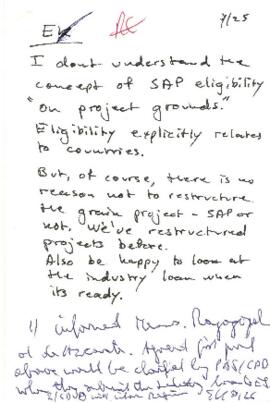 7/25
EK
I dont understand the
concept of SAP eligibility
"on project grounds."
Eligibility explicitly relates
to countries.
But, of course, there is no
reason not to restructure
the grain project - SAP or
not. We've restructured
projects before.
Also be happy to look at
the industry loan when
its ready.
1) informed Messrs.
above would be clarified by PAS/CPD
when they submit the industry